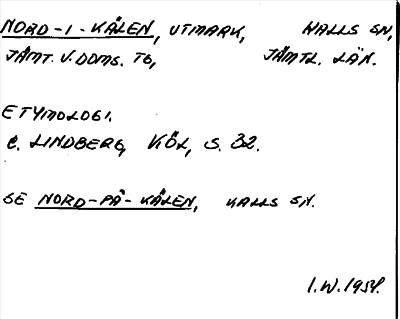 NORD-I-KÄLEN, UTMARK, KALLS SN,
JÄMT. V. DOMS. TG, JÄMTL. LÄN.
ETYMOLOGI.
C. LINDBERG, KÖL, S. 32.
SE NORD-PÅ-KÄLEN, KALLS SN.
I.W.1954.